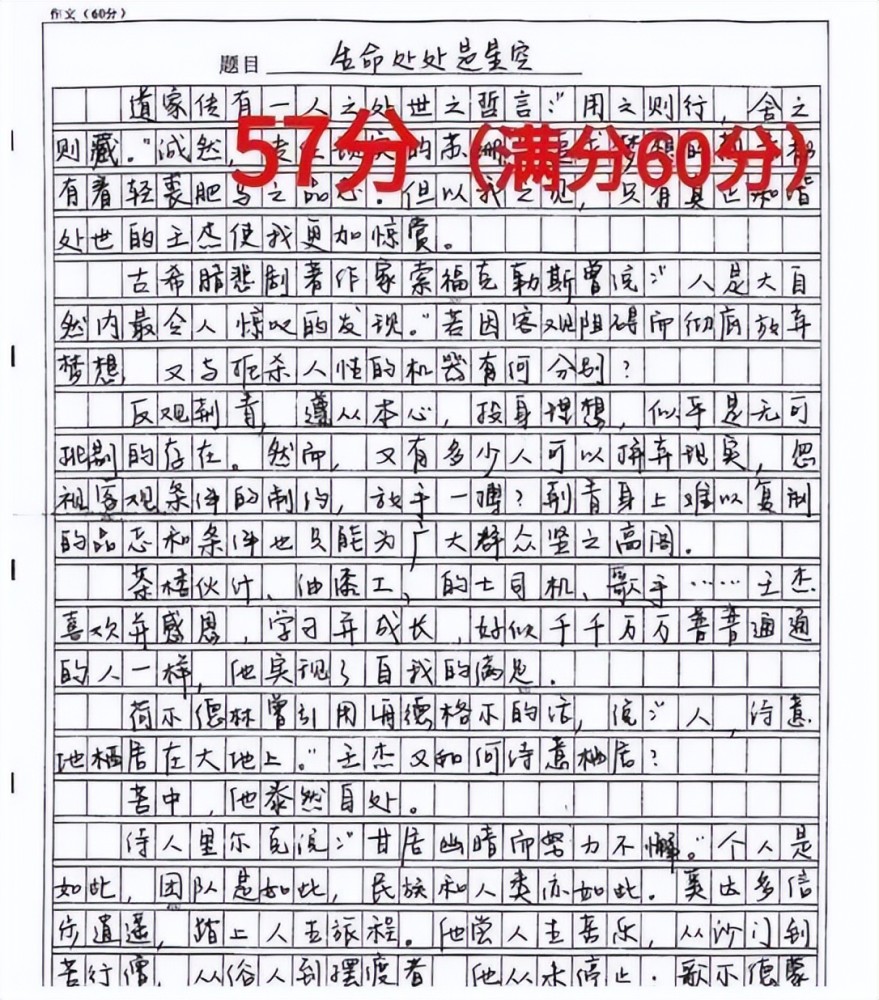 作文(60分)
题目 生命处处是星空
道家传有一人之处世之哲言:"用之则行,舍之
57分(满分60分)
则藏。"诚然,的苏
有着轻裘肥马之品志.但以我之见,只有真正和谐
处世的王杰使我更加惊赏。
古希腊悲剧著作家索福克勒斯曾说:"人是大自
然内最令人惊叹的发现。"若因客观阻碍而彻底放弃
梦想,又与扼杀人性的机器有何分别?
反观荆青,遵从本心,投身理想,似乎是无可
批判的存在。然而,又有多少人可以摒弃现实,忽
视客观条件的制约,放手一搏?荆青身上难以复制
的品志和条件也只能为广大群众坚之高阁.
茶楼伙计、油漆工、的士司机、歌手……王杰
喜欢并感恩,学习并成长,好似千千万万普普通通
的人一样,他实现了自我的满足.
荷尔德林曾引用海德格尔的话,说:"人,诗意
地栖居在大地上。"王杰又如何诗意栖居?
苦中,他泰然自处。
诗人里尔克说:"甘居幽暗而努力不懈。"个人是
如此,团队是如此,民族和人类亦如此.奚达多信
步逍遥,踏上人生旅程。他尝人生苦乐,从沙门到
苦行僧,从俗人到摆渡者 他从未停止.歌尔德蒙